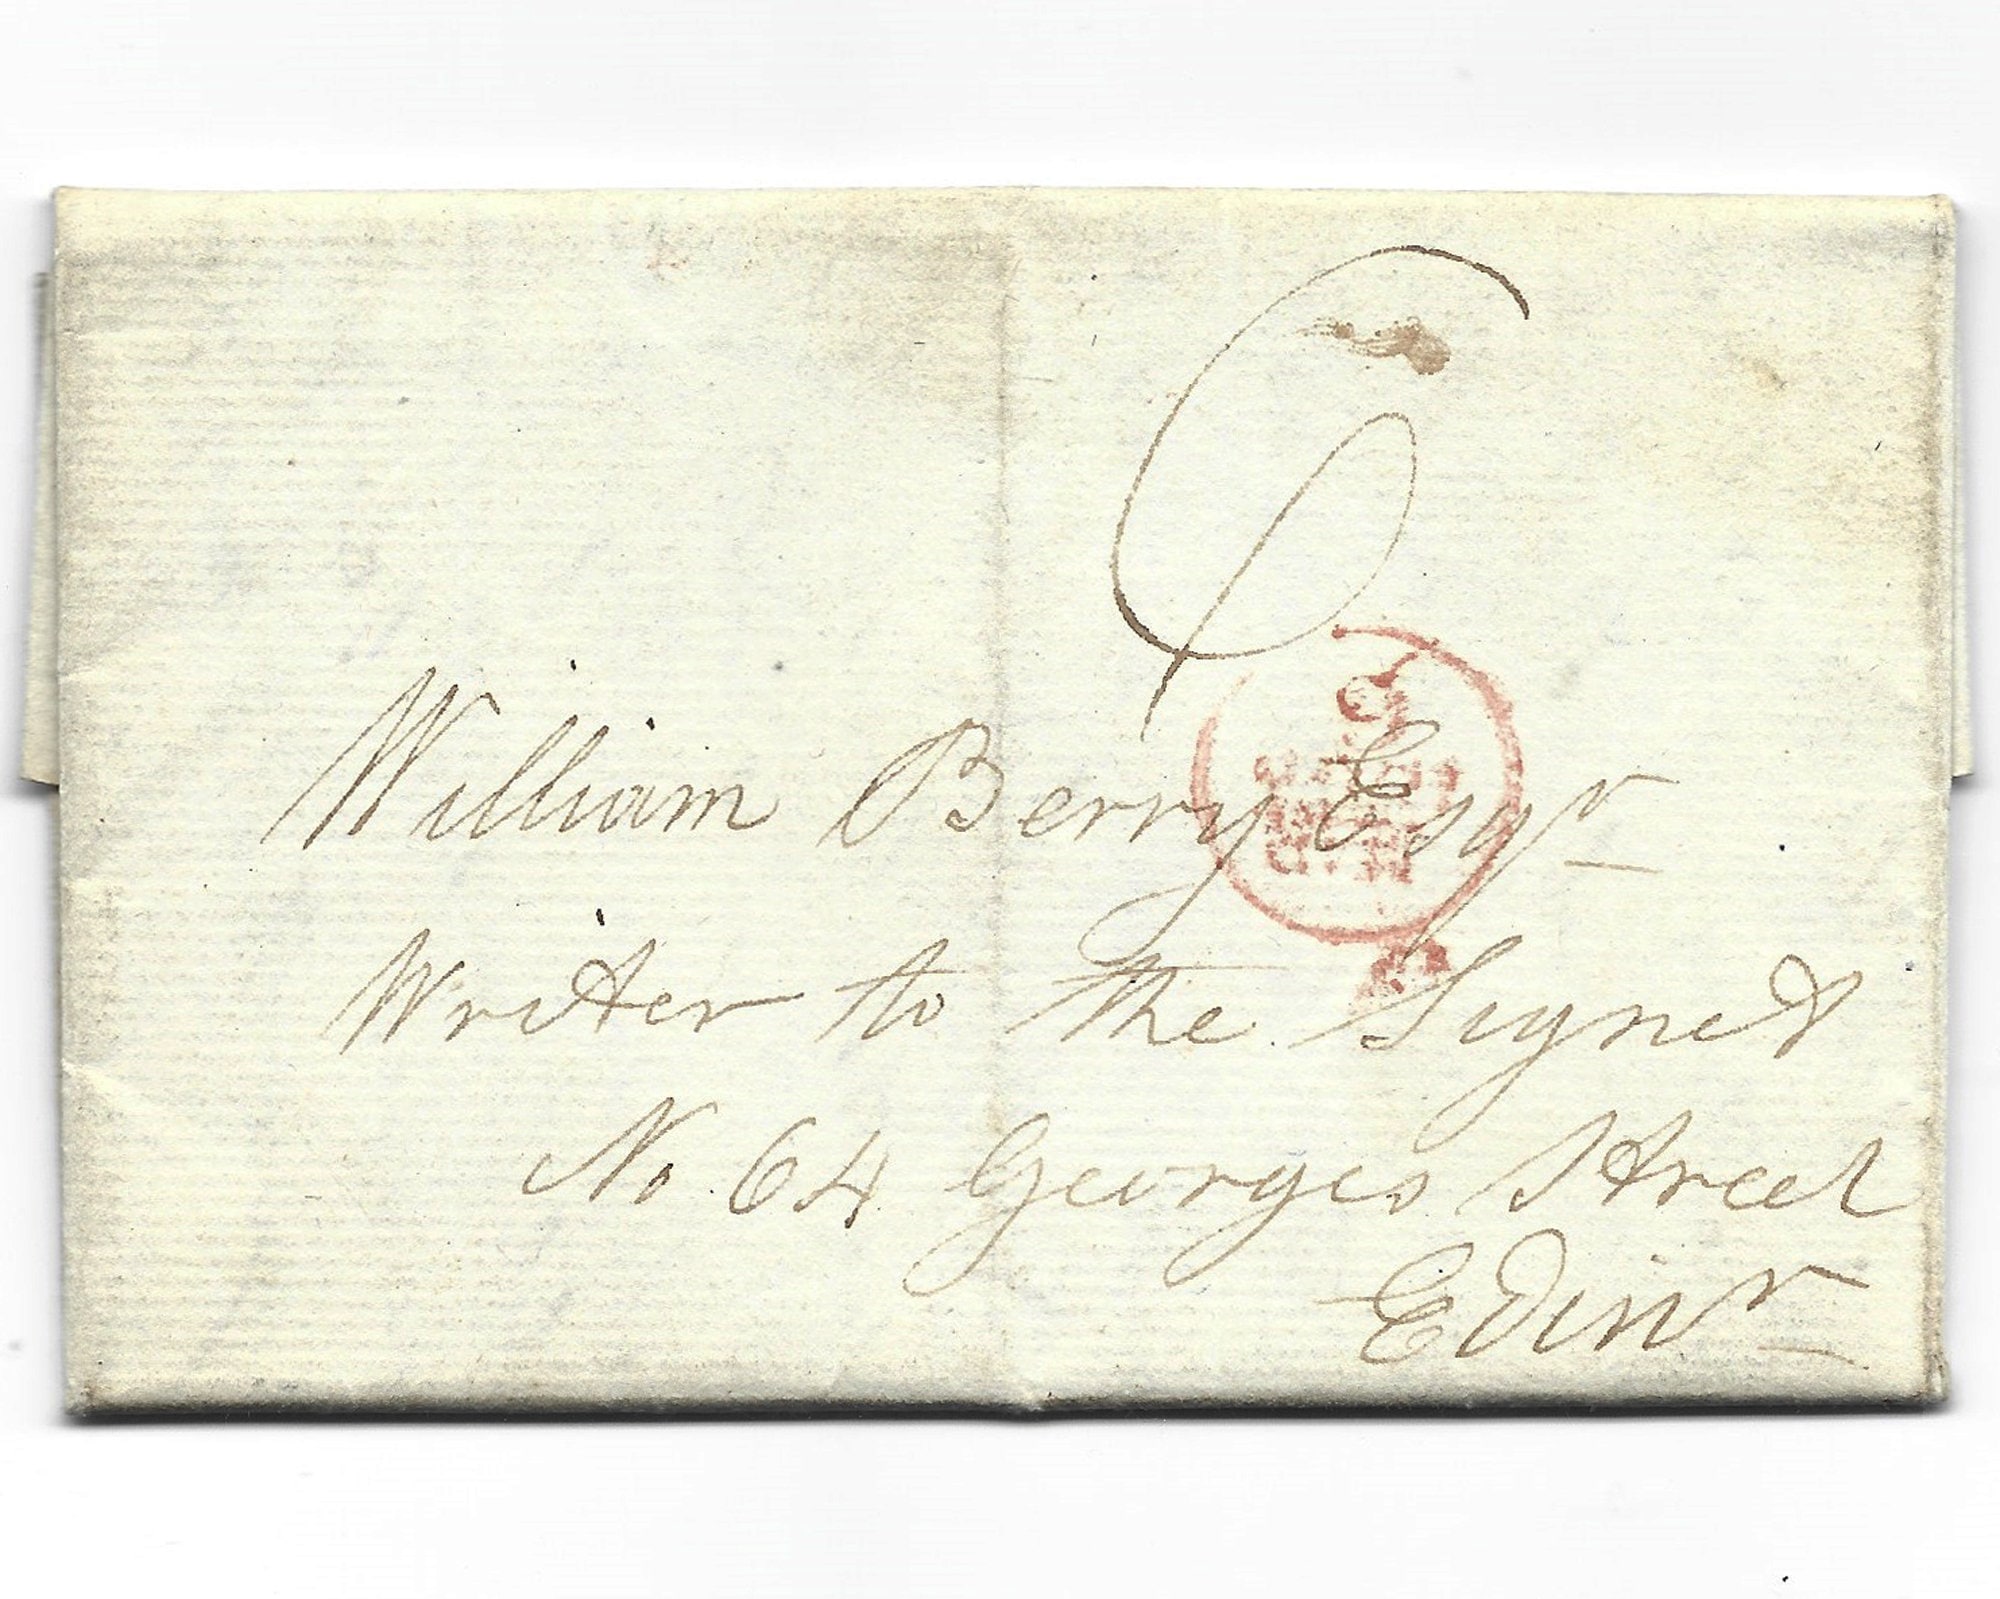 6
William Berry Esqr
Writer to the Signet
No. 64 Georges Street
Edinr